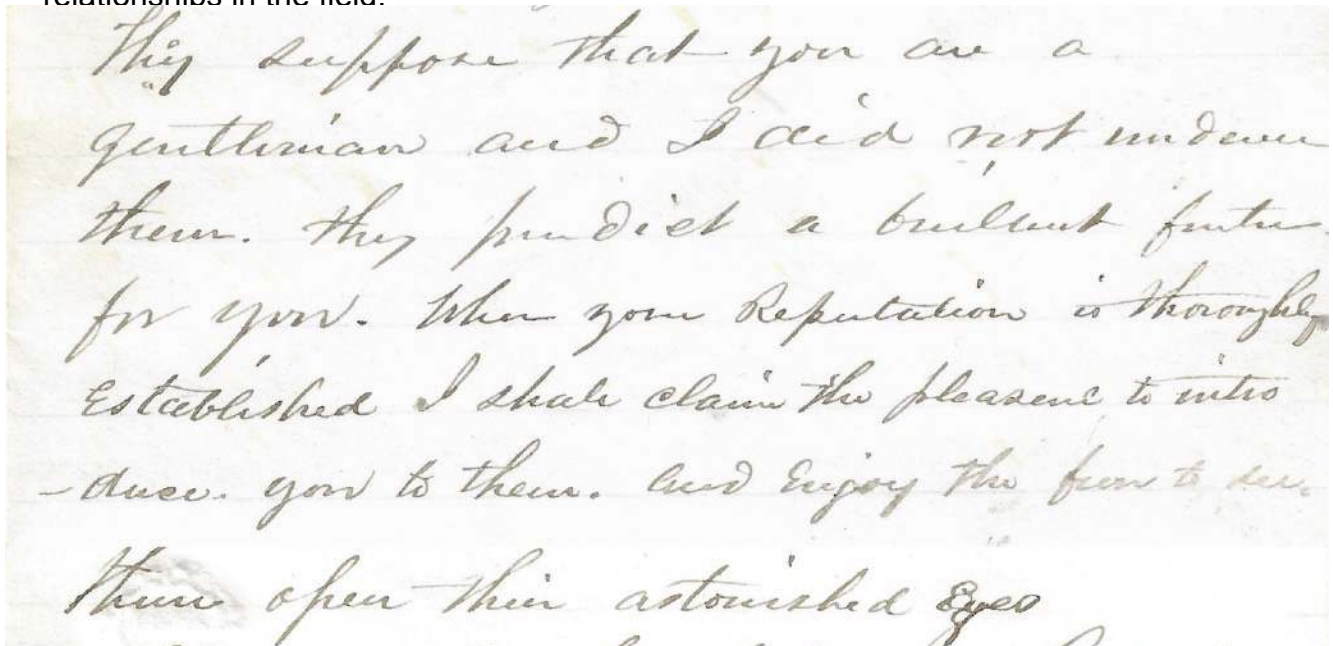 relationships in the field.
They suppose that you are a
gentleman and I did not undeceive
them. They predict a brilliant future
for you. When your Reputation is thoroughly
Established I shall claim the pleasure to intro
-duce you to them. and Enjoy the fun to see
them open their astonished Eyes